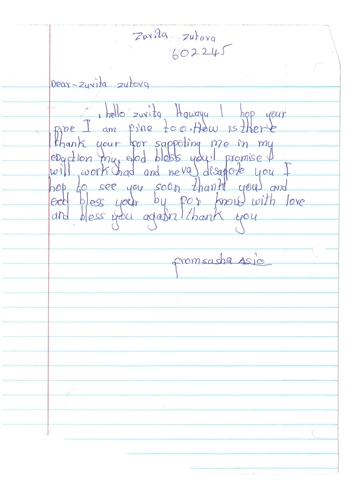 Zuvita Zutova
602245
Dear-Zuvita zutova
hello zuvita Hawayu I hop your
pine I am pine too. How is there
thank your por sappoting me in my
eductton my God bless you I promise I
will work had and neva disapote you I
hop to see you soon thank you and
God bless your by por know with love
and bless you again thank you
fromsasha Asio